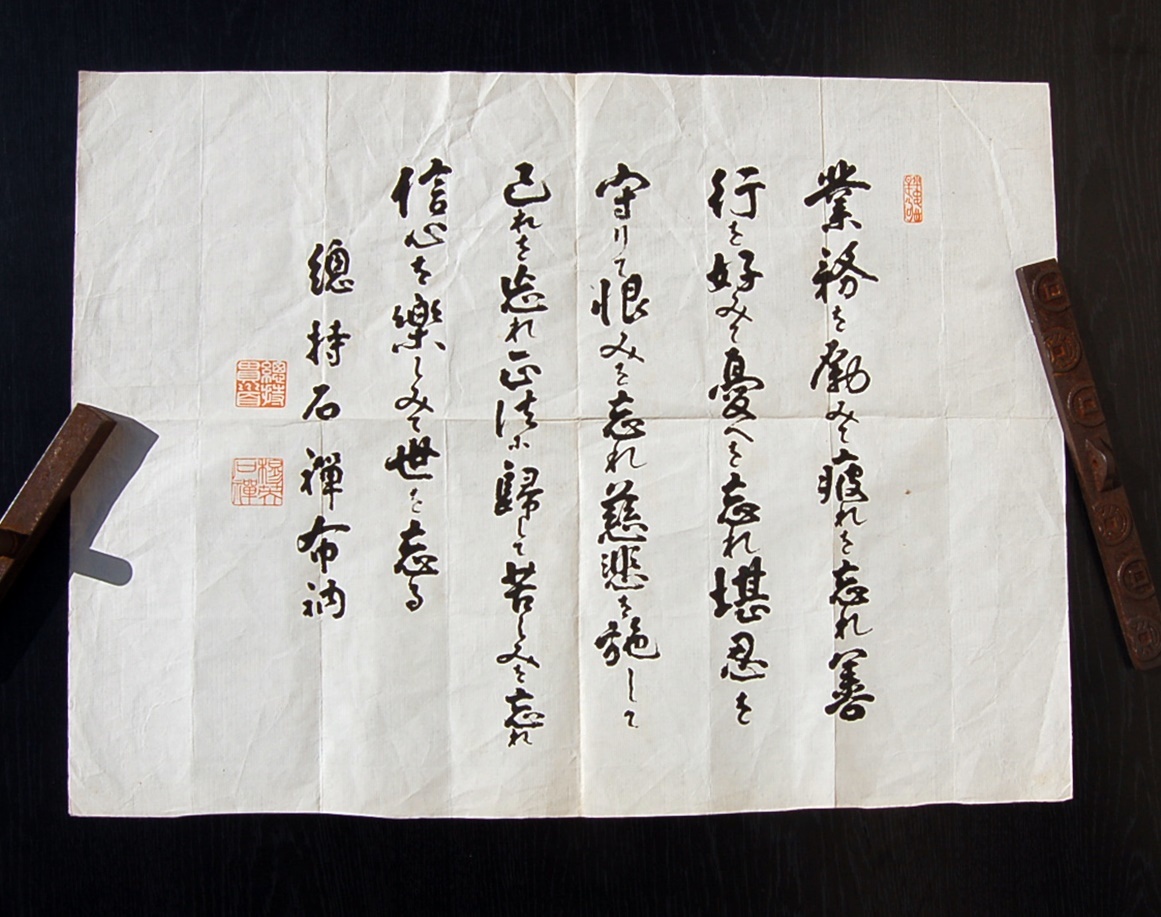 業務を励みて疲れを忘れ善
行を好みて憂へを忘れ堪忍を
守りて恨みを忘れ慈悲を施して
己れを忘れ正法に歸して苦しみを忘れ
信心を樂しみて世を忘る
總持石禅布衲
總持
貫首
穆英
石禅